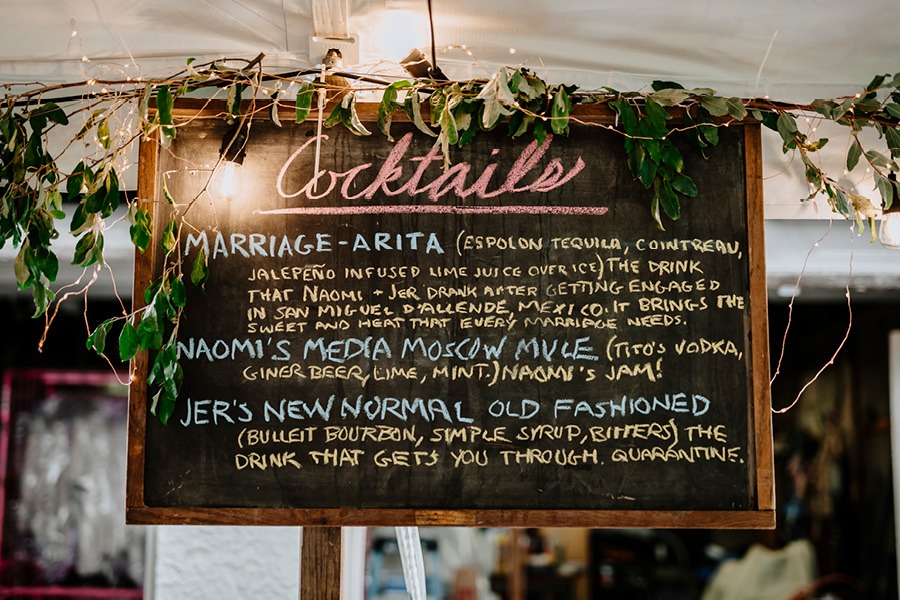 Cocktails
MARRIAGE-ARITA (ESPOLON TEQUILA, COINTREAU,
JALEPEÑO INFUSED LIME JUICE OVER ICE) THE DRINK
THAT NAOMI + JER DRANK AFTER GETTING ENGAGED
IN SAN MIGUEL D'ALLENDE, MEXICO. IT BRINGS THE
SWEET AND HEAT THAT EVERY MARRIAGE NEEDS.
NAOMI'S MEDIA MOSCOW MULE (TITO'S VODKA,
GINER BEER, LIME, MINT.) NAOMI'S JAM!
JER'S NEW NORMAL OLD FASHIONED
(BULLEIT BOURBON, SIMPLE SYRUP, BITTERS) THE
DRINK THAT GETS YOU THROUGH. QUARANTINE.